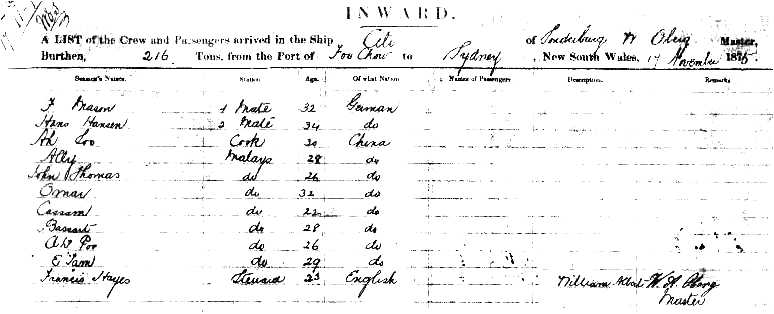 INWARD.
A LIST of the Crew and Passengers arrived in the Ship of Sonderburg Master,
Burthen, 216 Tons, from the Port of Foo Chow to Sydney, New South Wales, 17 November 187
Seaman's Names. Station Age. Of what Nation Names of Passengers Description. Remarks
F Mason 1 Mate 32 German
Hans Hansen 2 Mate 34 do
Ah Loo Cook 30 China
Ally Malays 28 do
John Thomas do 26 do
Omar do 32 do
Cassam do 22 do
Bassart do 28 do
Ah Poo do 26 do
E Tam do 29 do
Francis Hayes Steward 23 English William W. H. Oberg
Master